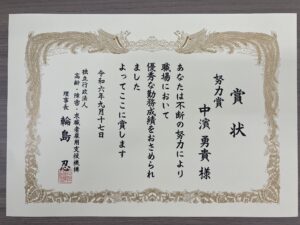 賞状
努力賞
中濱勇貴様
あなたは不断の努力により
職場において
優秀な勤務成績をおさめられ
ました
よってここに賞します
令和六年九月十七日
独立行政法人
高齢・障害・求職者雇用支援機構
理事長 輪島忍